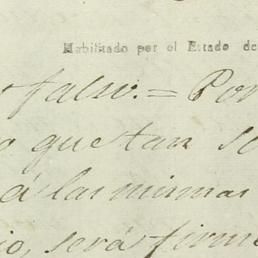 Habilitado por el Estado de
falso. = Por
que tan
á las mismas
será firme